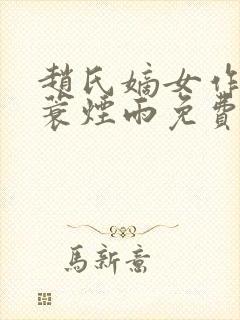 趙氏嫡女作
蓑煙雨免費
馬新意